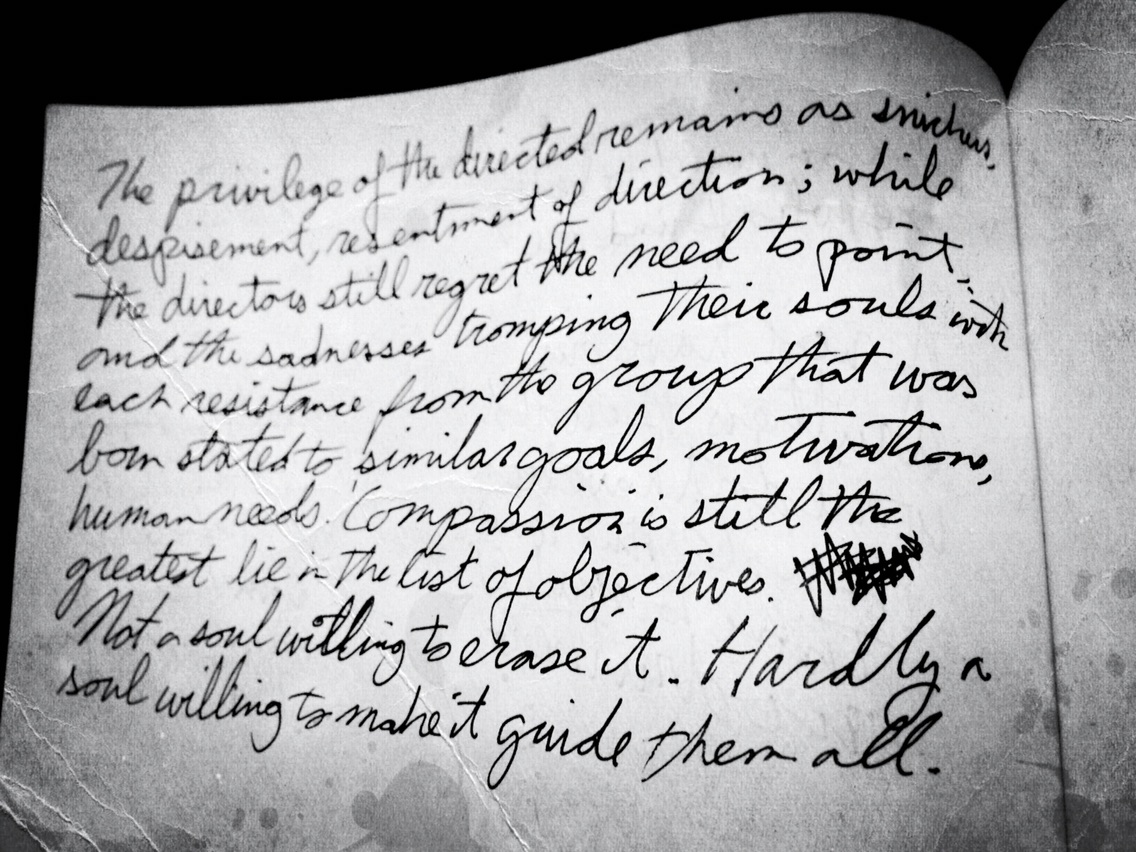 The privilege of the directed remains as snickers,
despisement, resentment of direction; while
the directors still regret the need to point,
and the sadnesses tromping their souls with
each resistance from the group that was
born stated to similar goals, motivations,
human needs. Compassion is still the
greatest lie in the list of objectives.
Not a soul willing to erase it. Hardly a
soul willing to make it guide them all.